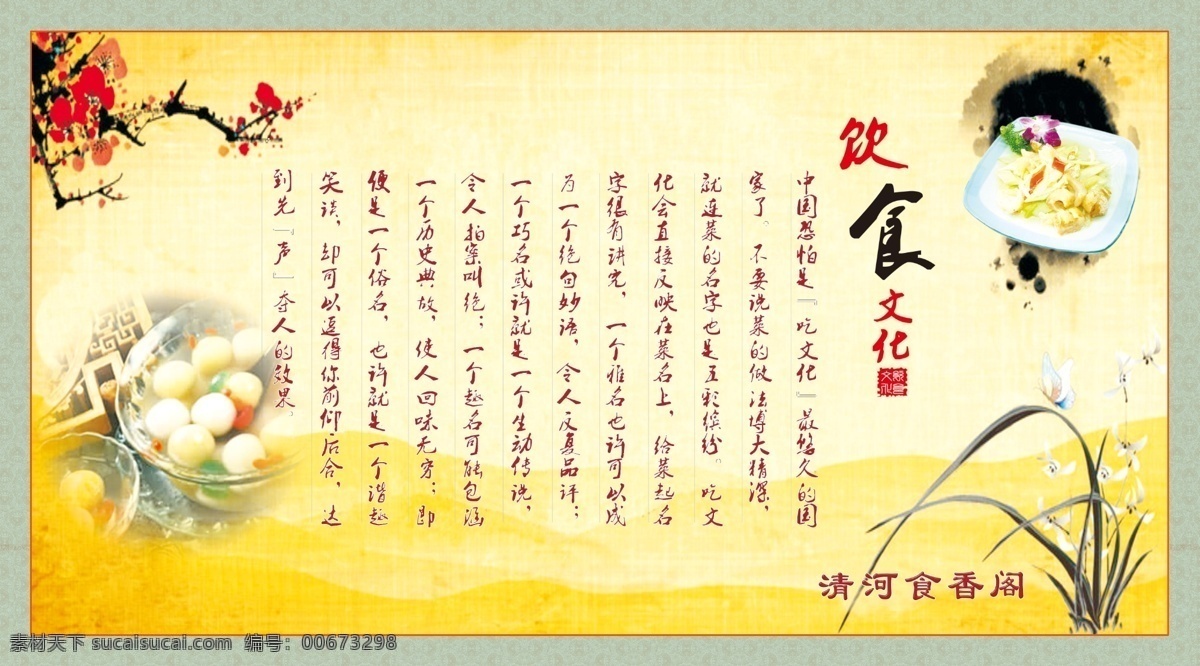 饮食文化
中国恐怕是『吃文化』最悠久的国
家了。不要说菜的做法博大精深，
就连菜的名字也是五彩缤纷。吃文
化会直接反映在菜名上，给菜起名
字很有讲究，一个雅名也许可以成
为一个绝句妙语，令人反复品评；
一个巧名或许就是一个生动传说，
令人拍案叫绝；一个趣名可能包涵
一个历史典故，使人回味无穷；即
便是一个俗名，也许就是一个谐趣
笑谈，却可以逗得你前仰后合，达
到先『声』夺人的效果。
清河食香阁
素材天下 sucaisucai.com 编号：00673298